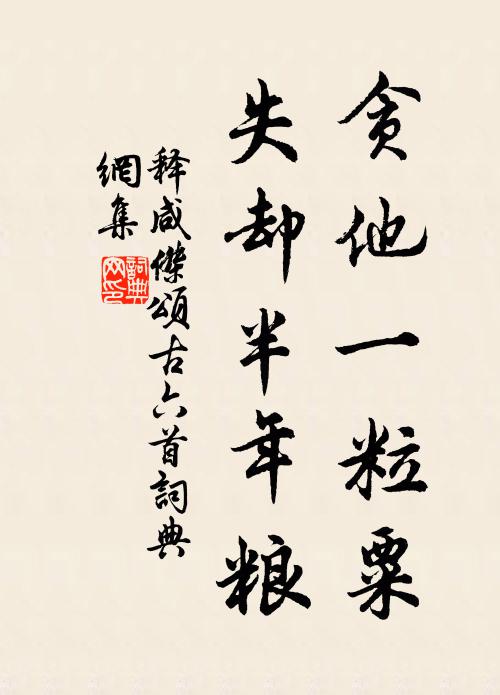 贪他一粒粟
失却半年粮
释咸傑頌古六首詞典
網集
詞典網印